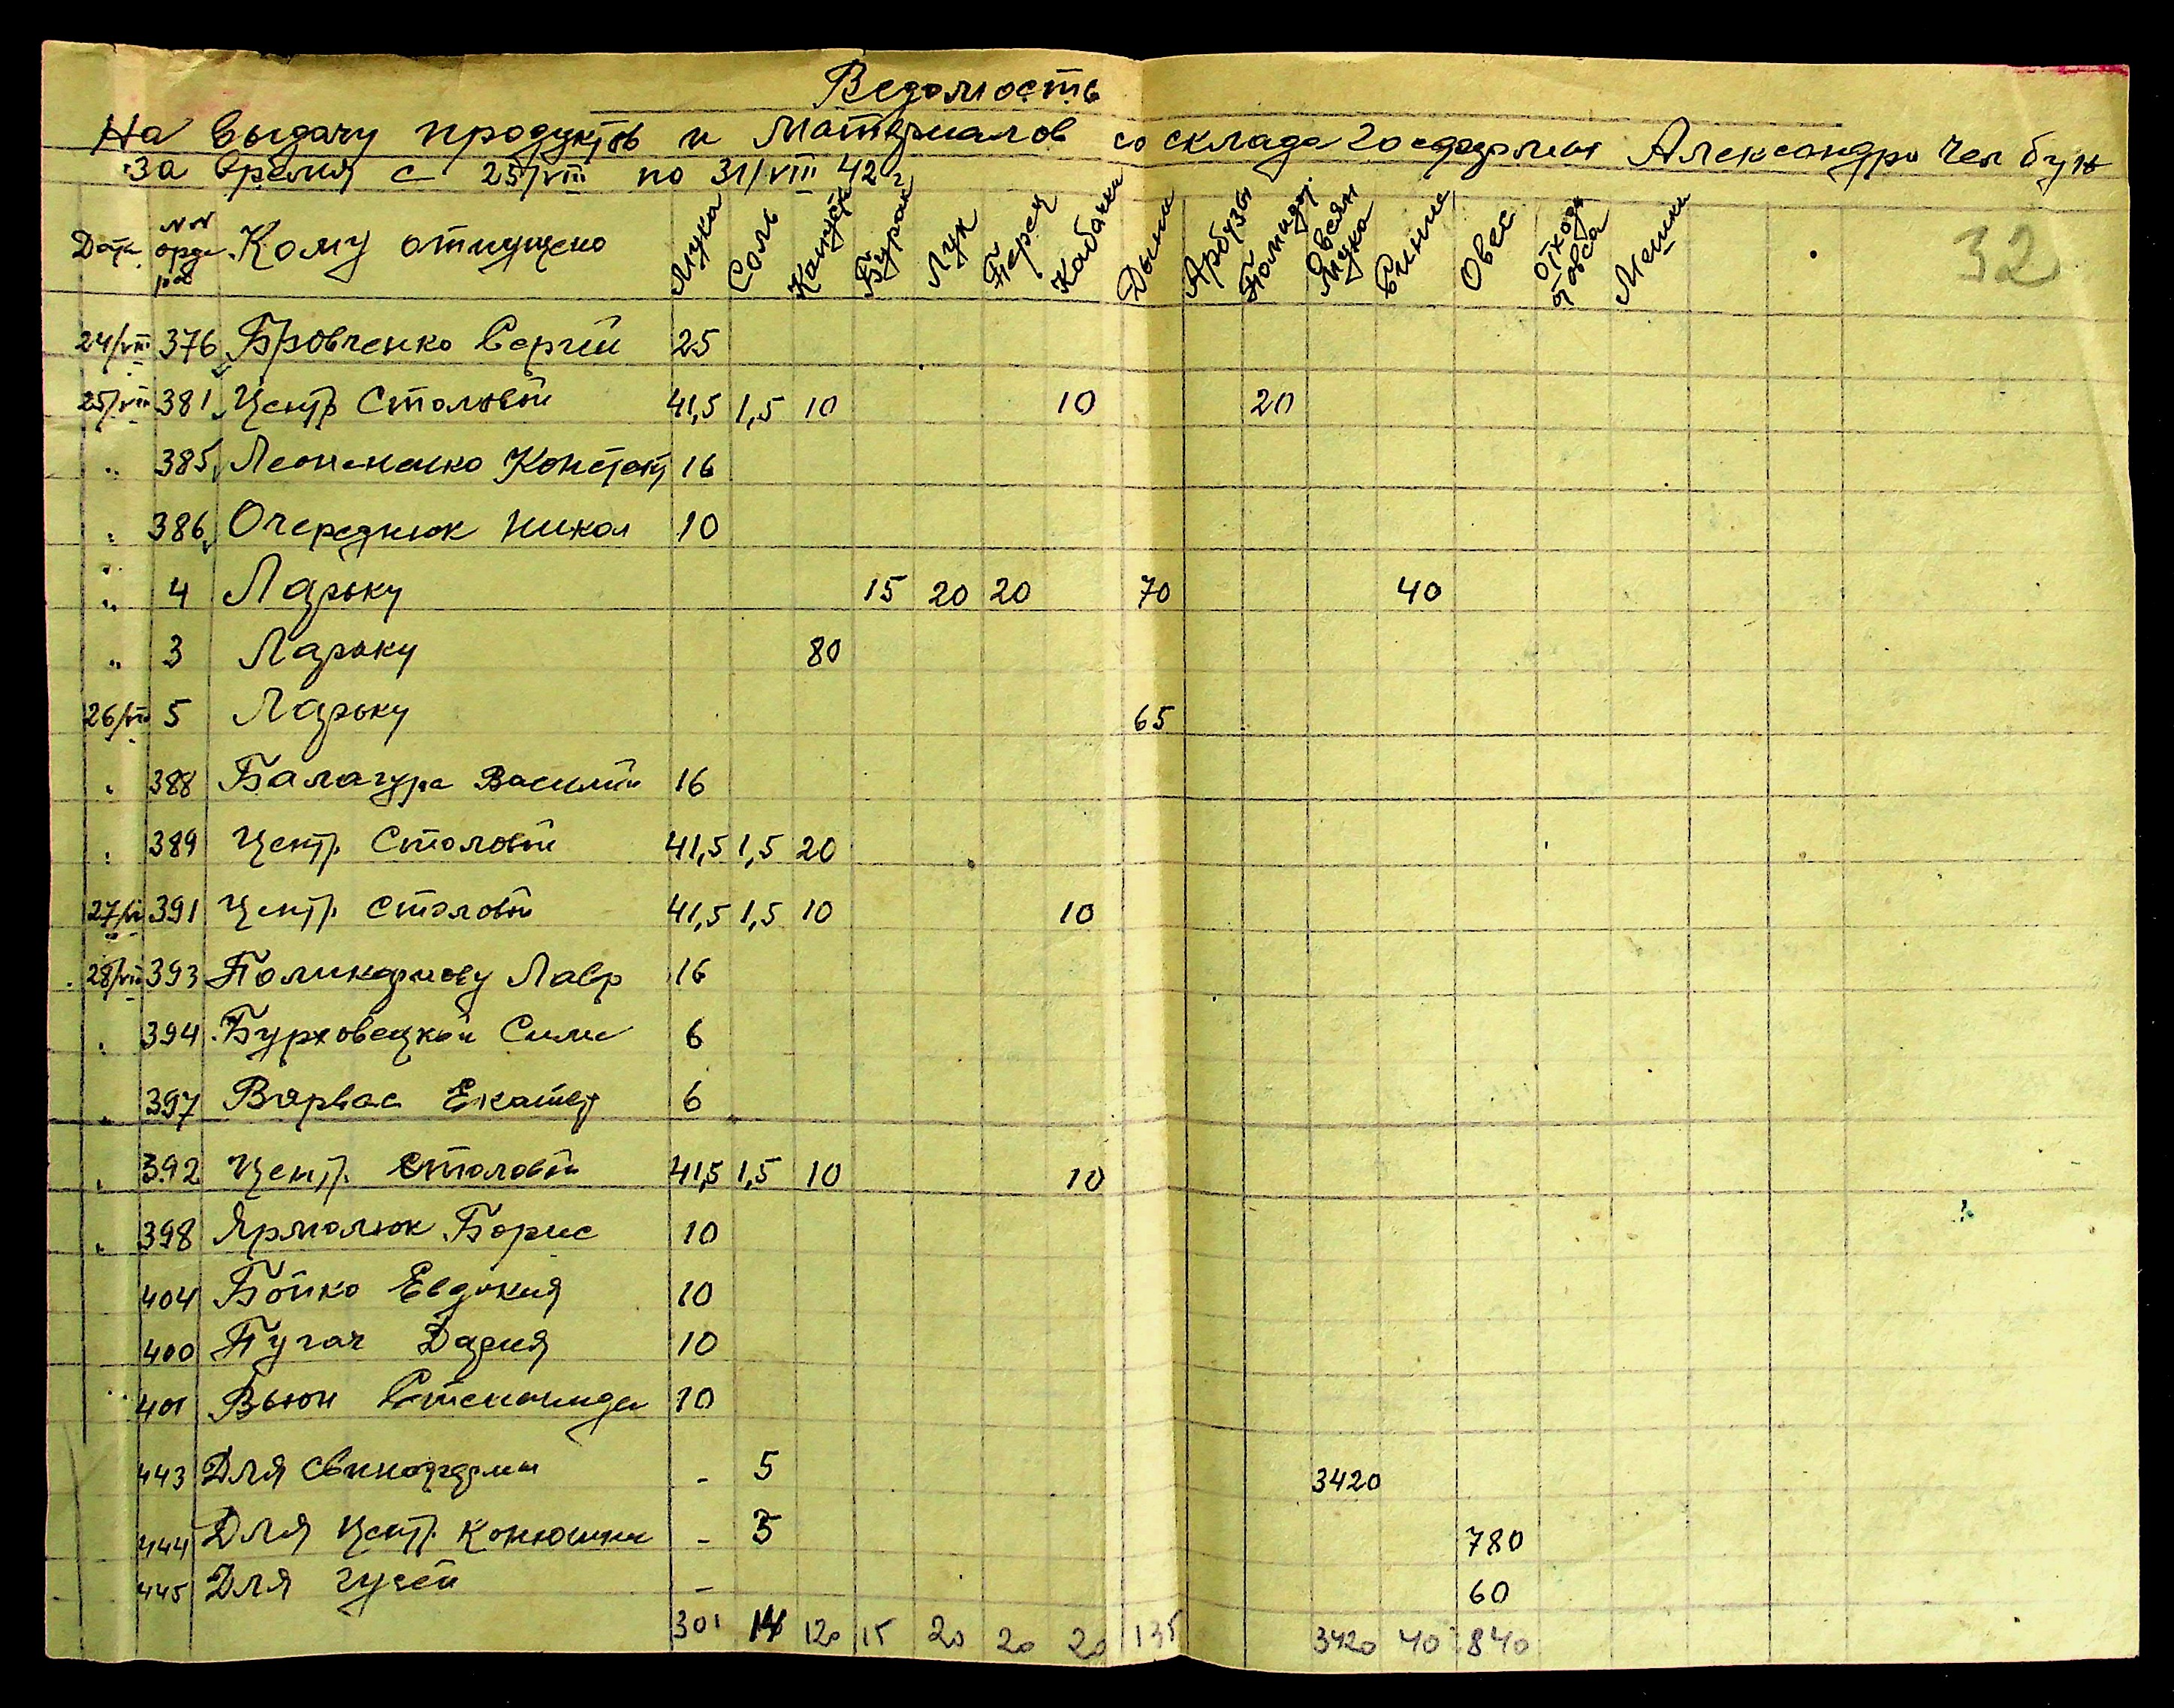 Ведомость
На выдачу продуктов и материалов со склада Александро
За время с 25/VIII по 31/VIII 42 г
Дата №№ орде ра Кому отпущено Мука Соль Капуста Бурак Лук Перец Кабачки Дыни Арбузы Помидор. Овсян мука Овес отходы овса Мешки
32
24/VIII 376 Бровченко Сергей 25
25/VIII 381 Центр Столовой 41,5 1,5 10 10 20
" 385 Леоненко Констант 16
" 386 Очереднюк Никол 10
" 4 Ларьку 15 20 20 70 40
" 3 Ларьку 80
26/VIII 5 Ларьку 65
" 388 Балагура Василий 16
" 389 Центр. Столовой 41,5 1,5 20
27/VIII 391 Центр. Столовой 41,5 1,5 10 10
28/VIII 393 Поликарпову Лавр 16
" 394 Бурховецкой 6
" 397 Вярвас Екатер 6
" 392 Центр. Столовой 41,5 1,5 10 10
" 398 Ярмолюк Борис 10
404 Бойко Евдокия 10
400 Пугач Дария 10
" 401 Вьюн 10
443 Для свинофермы - 5 3420
444 Для Центр. Конюшни - 3 780
445 Для гусей - 60
301 14 120 15 20 20 20 135 3420 40 840